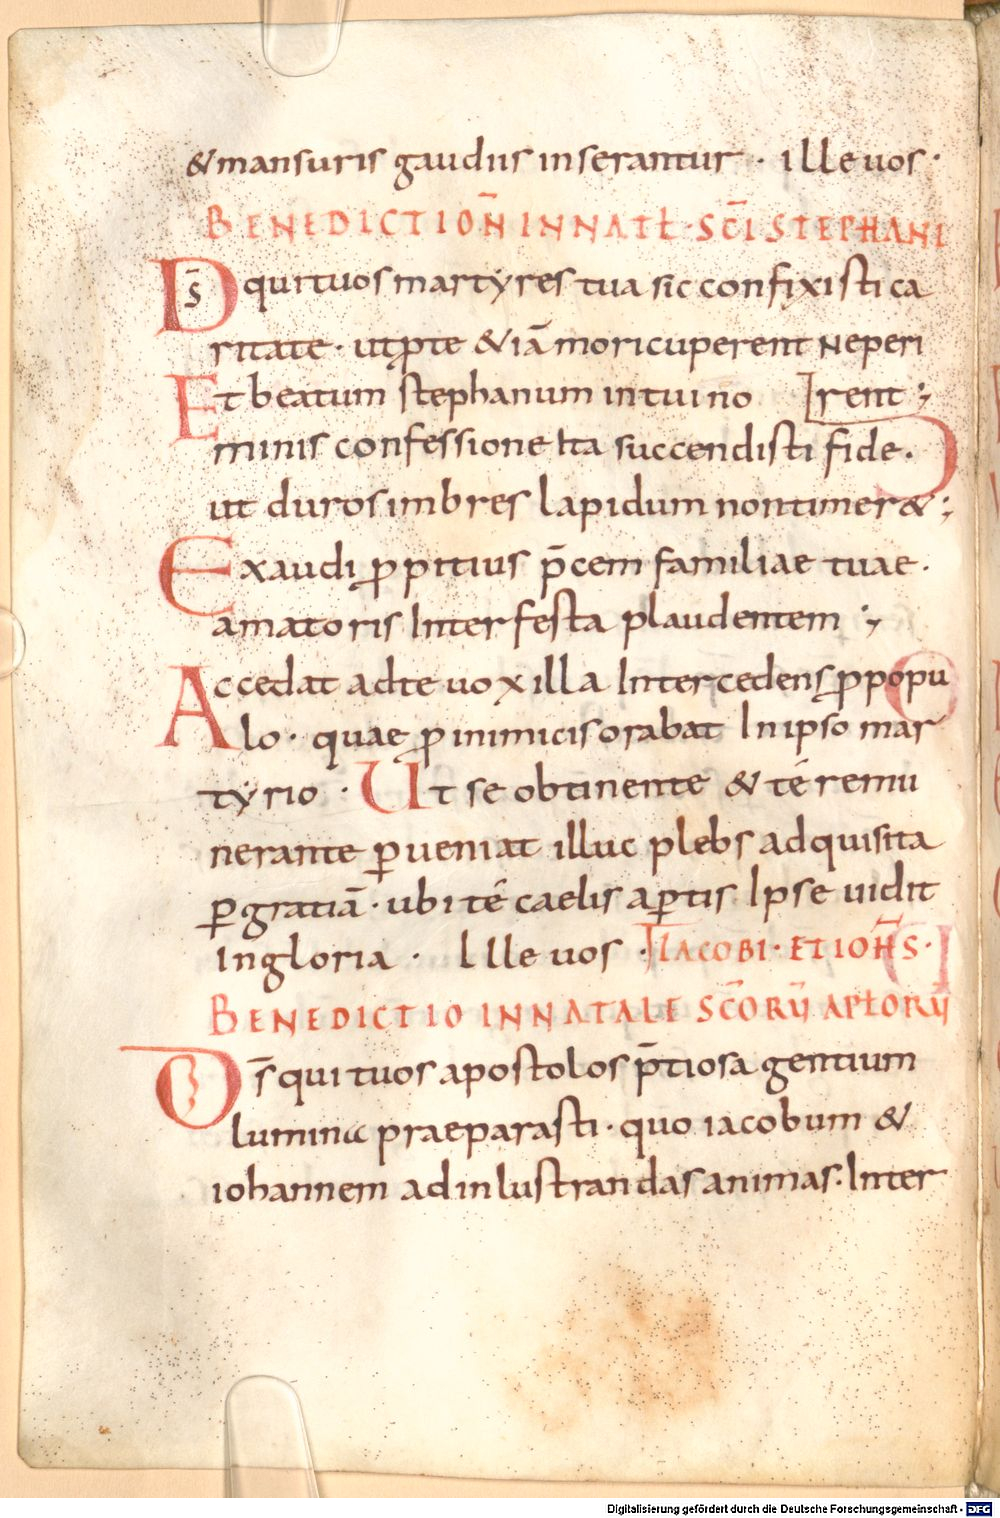 & mansuris gaudiis inserantur · ille uos ·
BENEDICTION̄ IN NATŁ · SC̄I STEPHANI
DS̄ qui tuos martẏres tua sic confixisti ca
ritate · ut p̱te & iā mori cuperent Ne peri
Et beatum stephanum in tui no rent ;
minis confessione Ita succendisti fide ·
ut duros imbres lapidum non timer& ;
Exaudi ꝓpitius p̄cem familiae tuae ·
amatoris Inter festa plaudentem ;
Accedat ad te uox illa Intercedens ꝓ popu
lo · quae ꝓ inimicis orabat In ipso mar
tẏrio · Ut se obtinente & té remu
nerante ꝑueniat illuc plebs adquisita
ꝑ gratiā · ubi té caelis aꝑtis Ipse uidit
In gloria · Ille uos · IACOBI · ET IOH̄S ·
BENEDICTIO IN NATALE SC̄ORŪ APŁORŪ
Ds̄ qui tuos apostolos p̄tiosa gentium
lumina praeparasti · quo iacobum &
iohannem ad inlustrandas animas · Inter
Digitalisierung gefördert durch die Deutsche Forschungsgemeinschaft - DFG